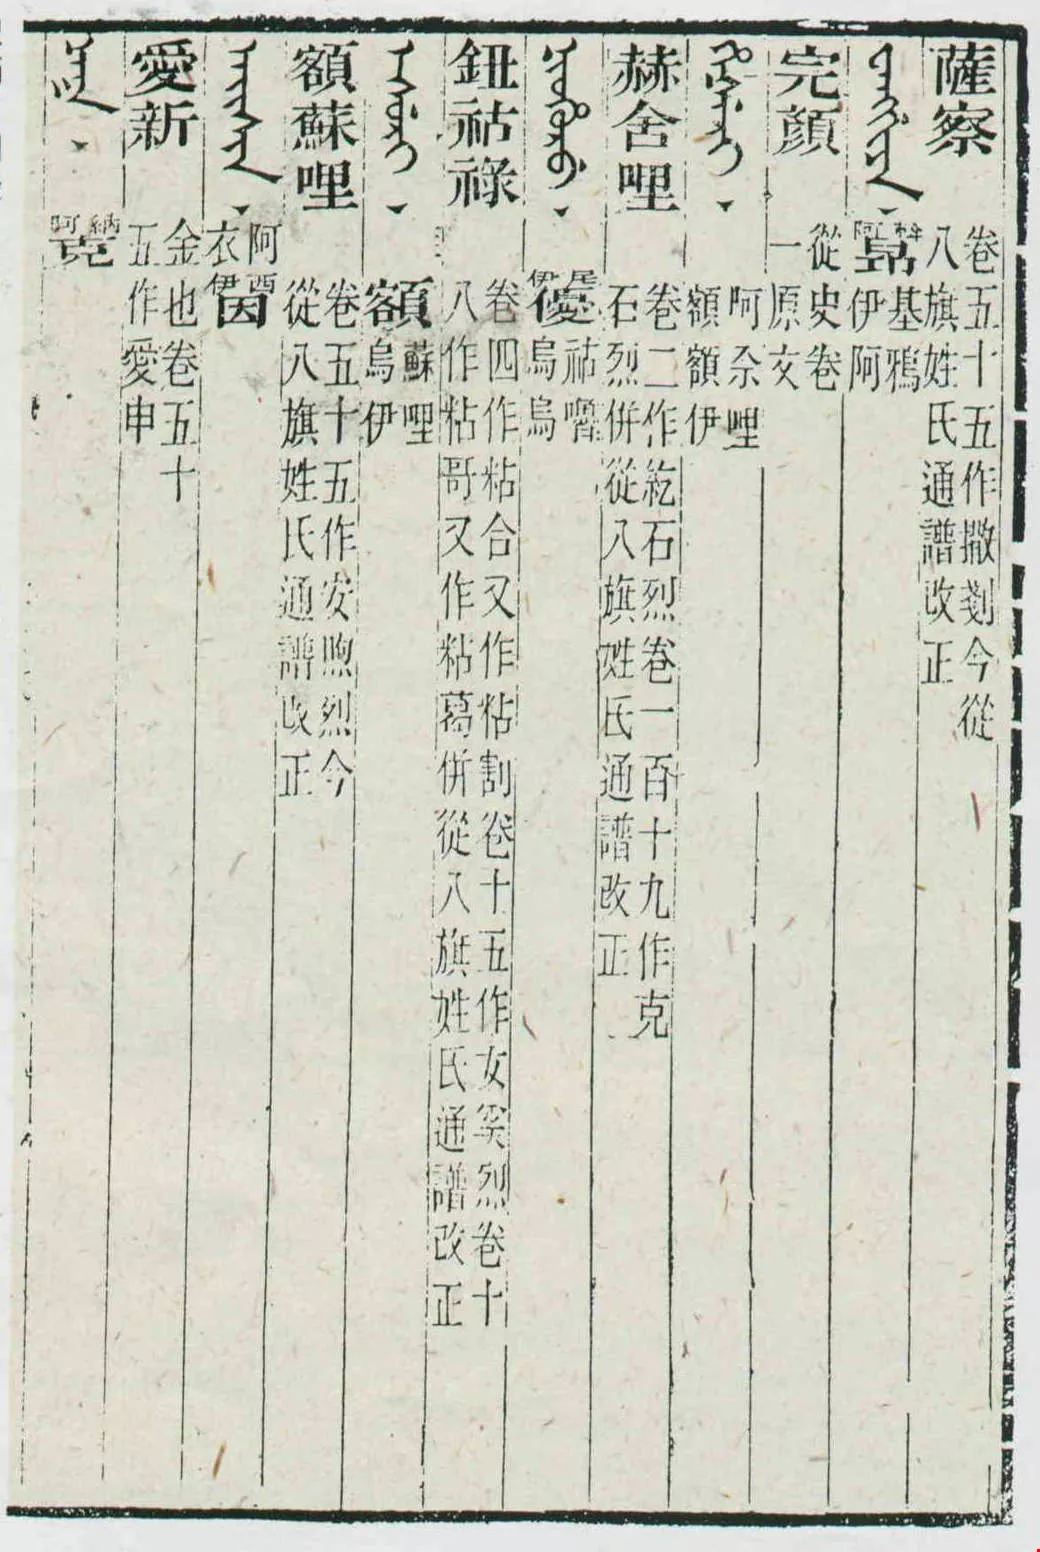 薩察
卷五十五作撒剗今從
八旗姓氏通譜改正
基鴉
伊阿
完顏
從史卷
一原文
阿奈哩
額額伊
赫舍哩
卷二作紇石烈卷一百十九作克
石烈併從八旗姓氏通譜改正
祜嚕
烏烏
鈕祜祿
卷四作粘合又作粘割卷十五作女奚烈卷十
八作粘哥又作粘葛併從八旗姓氏通譜改正
額蘇哩
烏伊
額蘇哩
卷五十五作安煦烈今
從八旗姓氏通譜改正
阿
衣
愛新
金也卷五十
五作愛申